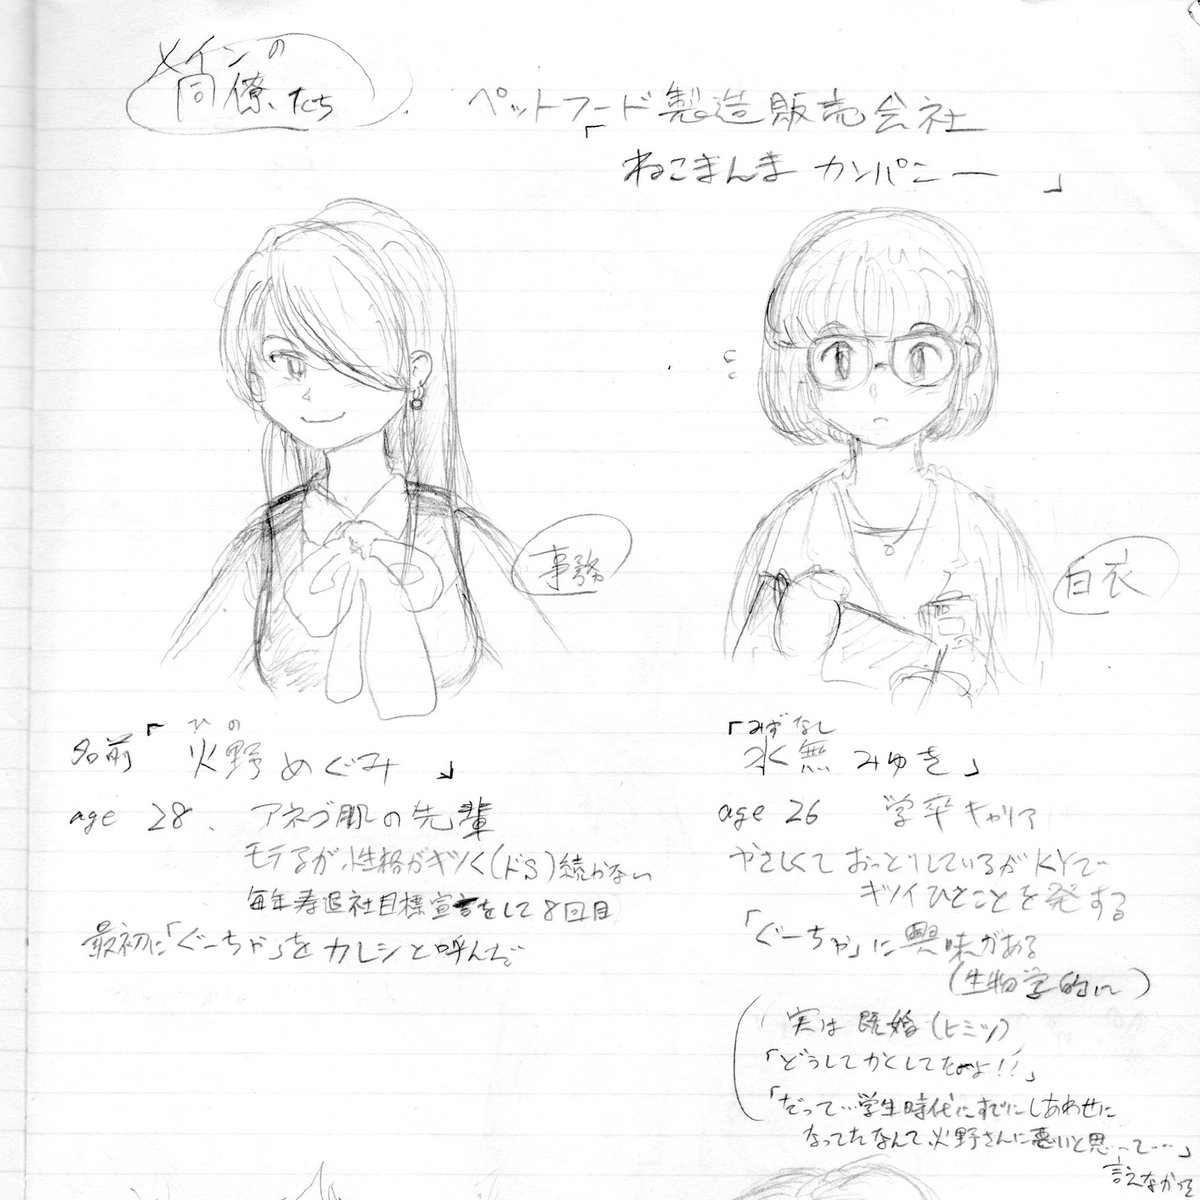 メインの
同僚たち
ペットフード製造販売会社
「ねこまんまカンパニー」
事務
白衣
名前「火野めぐみ」
ひの
age 28. アネゴ肌の先輩
モテるが、性格がキツく(ドS)続かない
毎年寿退社目標宣言をして8回目
最初に「ぐーちゃ」をカレシと呼んだ
みずなし
「水無みゆき」
age 26 学卒キャリア
やさしくておっとりしているがKYで
キツイひとことを発する
「ぐーちゃ」に興味がある
(生物学的に)
実は既婚(ヒミツ)
「どうしてかくしてたのよ!!」
「だって…学生時代にすでにしあわせに
なってたなんて、火野さんに悪いと思って…」
言えなかった